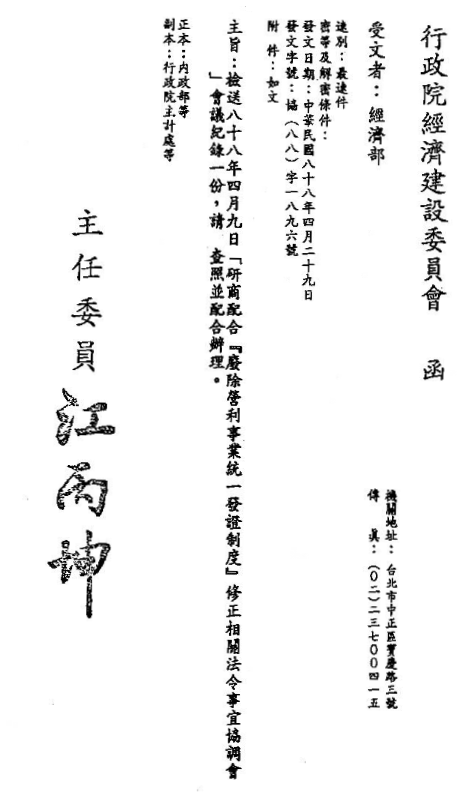 行政院經濟建設委員會 函
機關地址：台北市中正區寶慶路三號
傳 真：（０二）二三七００四一五
受文者：經濟部
速別：最速件
密等及解密條件：
發文日期：中華民國八十八年四月二十九日
發文字號：協（八八）字一八九六號
附 件：如文
主旨：檢送八十八年四月九日「研商配合『廢除營利事業統一發證制度』修正相關法令事宜協調會
」會議紀錄一份，請 查照並配合辦理。
正本：內政部等
副本：行政院主計處等
主任委員 江丙坤